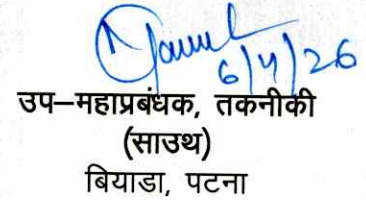 6/4/26
उप–महाप्रबंधक, तकनीकी
(साउथ)
बियाडा, पटना